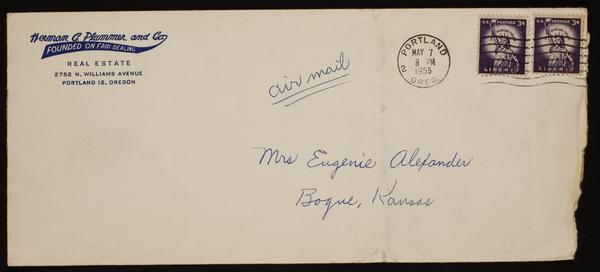 Herman C. Plummer and Co.
FOUNDED ON FAIR DEALING
REAL ESTATE
2752 N. WILLIAMS AVENUE
PORTLAND 12, OREGON
air mail
PORTLAND
MAY 7
8 PM
1955
2 OREG.
U.S. POSTAGE 3¢
LIBERTY
U.S. POSTAGE 3¢
LIBERTY
Mrs Eugenie Alexander
Bogue, Kansas